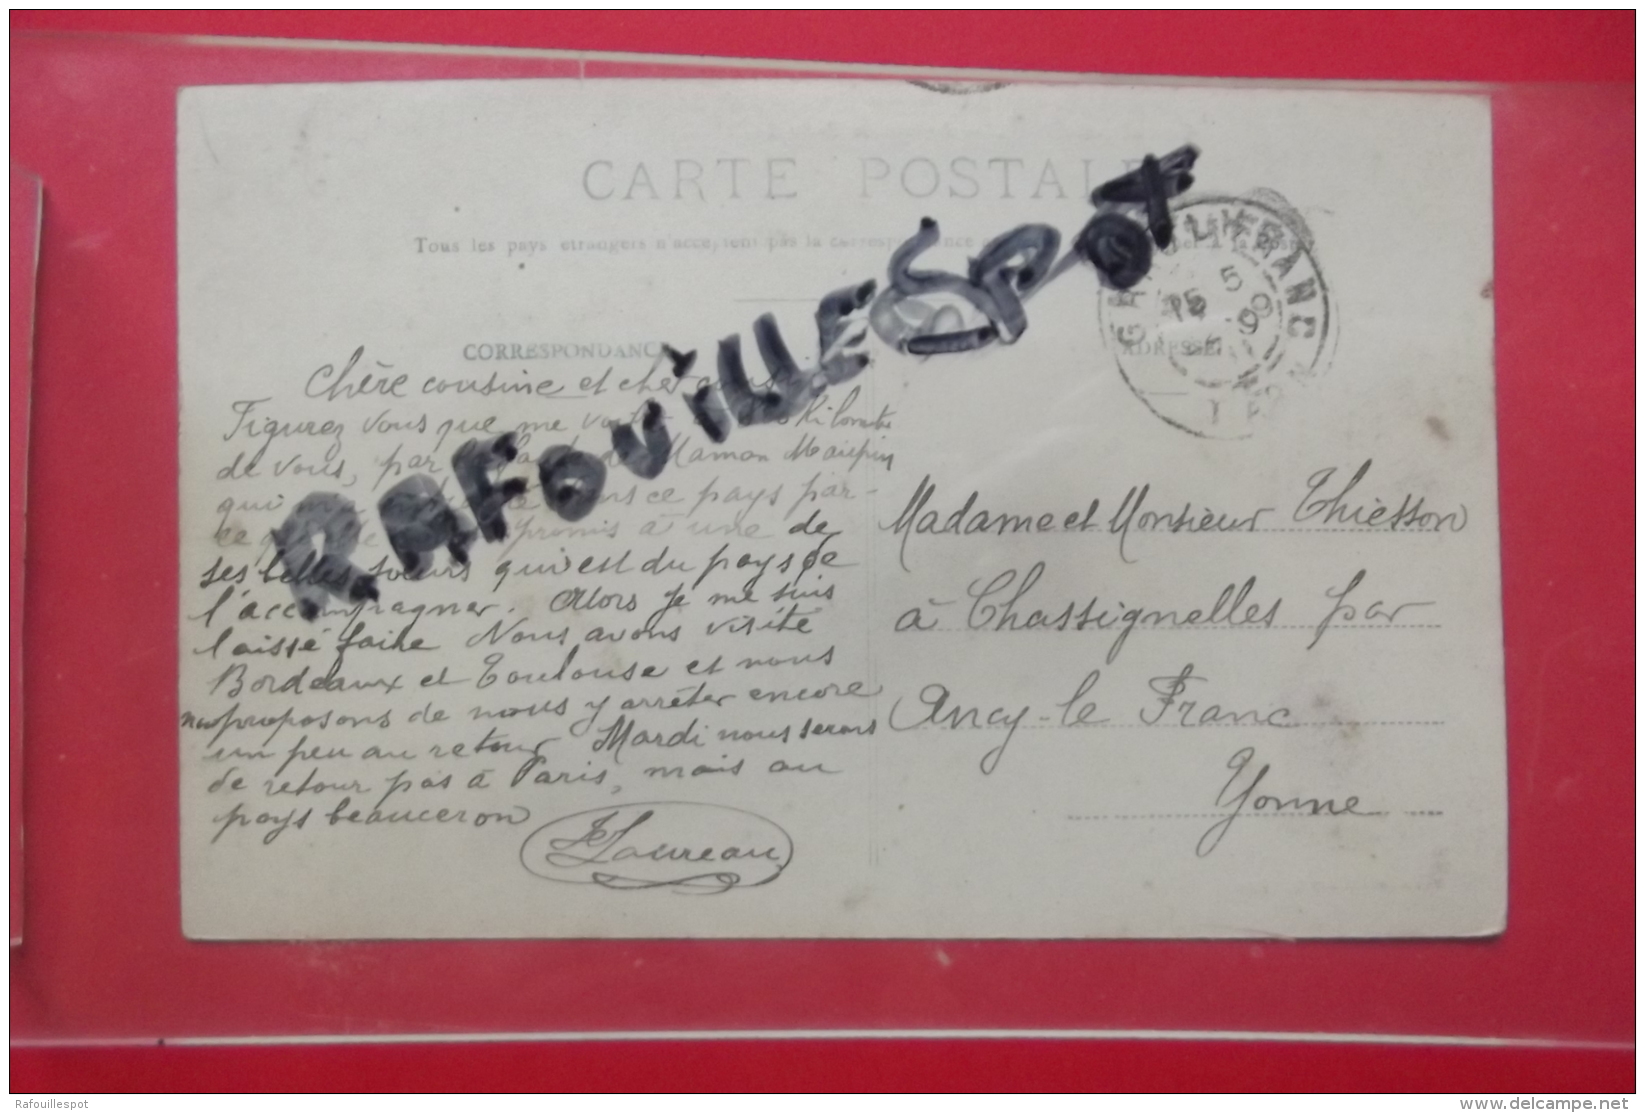 CARTE POSTALE
Tous les pays étrangers n'acceptent pas la correspondance
CORRESPONDANCE
ADRESSE
RAFOUiLLESPOT
Chère cousine et cher cousin
Figurez vous que me voilà Kilomètres
de vous, par la de Maman Maupin
qui dans ce pays par-
ce promis à une de
ses belles sœurs qui est du pays de
l'accompagner. Alors je me suis
laissé faire Nous avons visité
Bordeaux et Toulouse et nous
nous proposons de nous y arrêter encore
un peu au retour Mardi nous serons
de retour pas à Paris, mais au
pays beauceron
Laureau
Madame et Monsieur Thiesson
à Chassignelles par
Ancy-le Franc
Yonne
Rafouillespot
www.delcampe.net